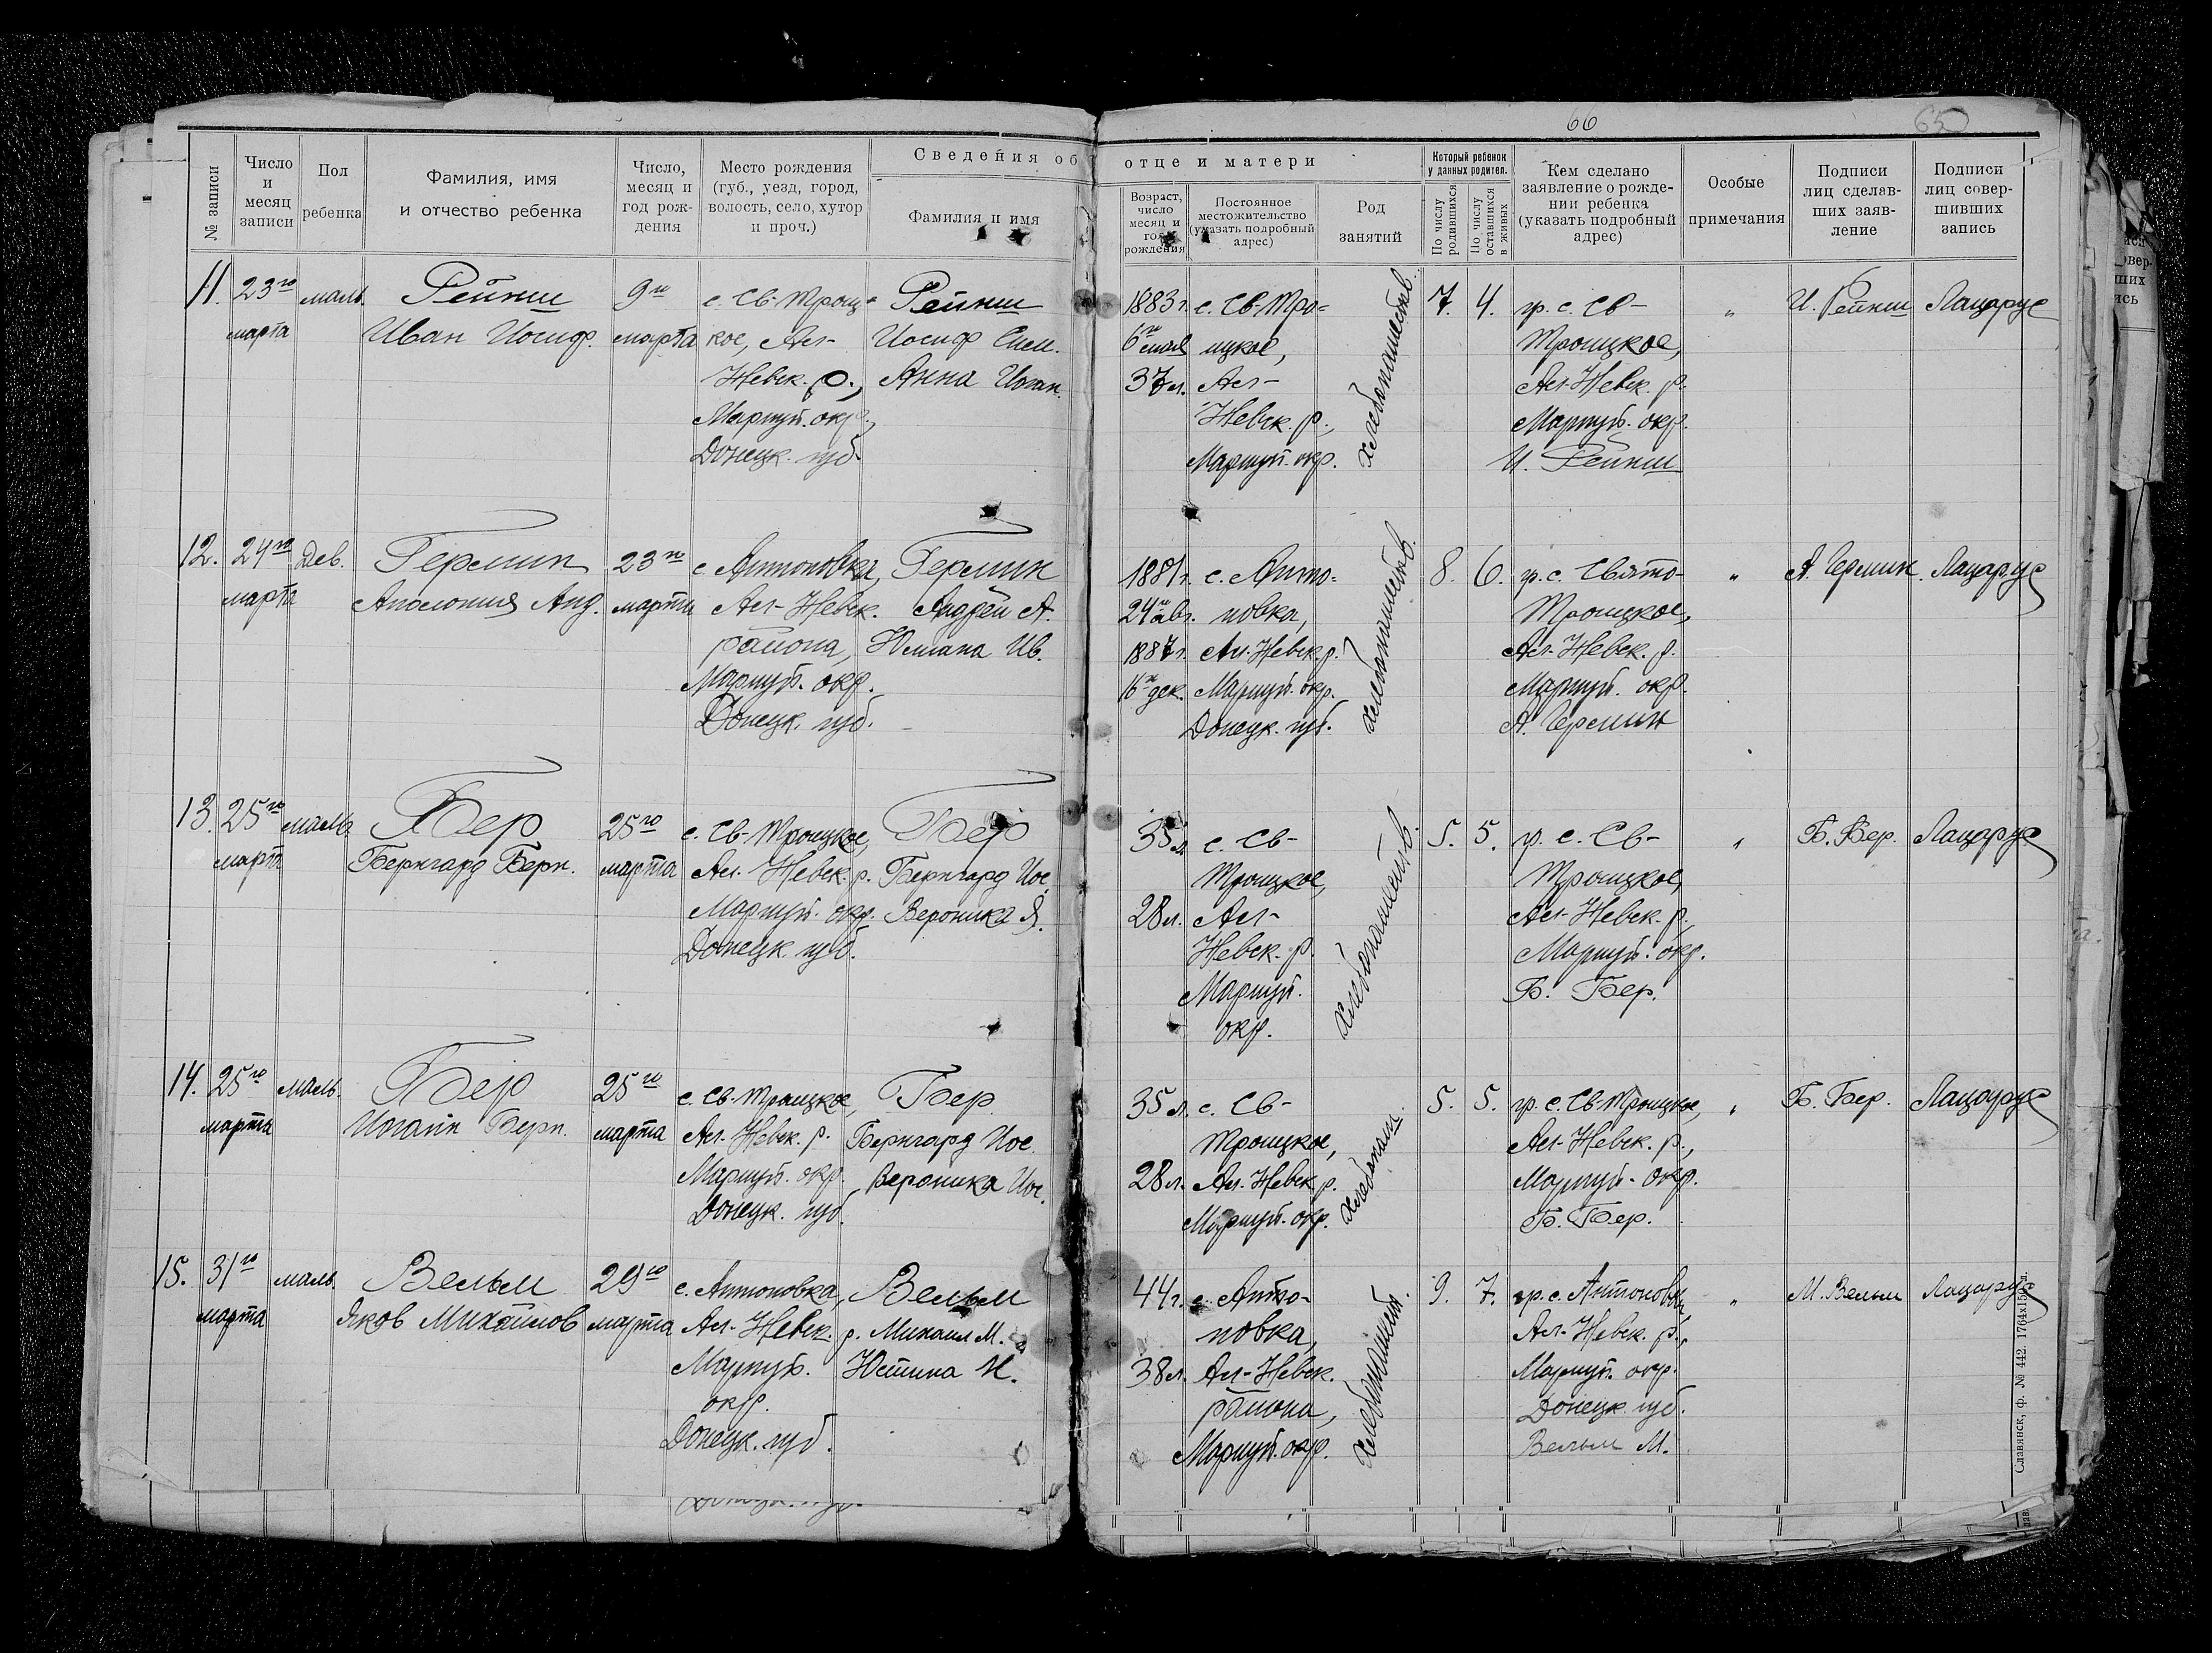 66
65
№ записи
Число и месяц записи
Пол ребенка
Фамилия, имя и отчество ребенка
Число, месяц и год рождения
Место рождения (губ., уезд, город, волость, село, хутор и проч.)
Сведения об отце и матери
Фамилия и имя
Возраст, число месяц и год рождения
Постоянное местожительство (указать подробный адрес)
Род занятий
Который ребенок у данных родител.
По числу родившихся
По числу оставшихся в живых
Кем сделано заявление о рождении ребенка (указать подробный адрес)
Особые примечания
Подписи лиц сделавших заявление
Подписи лиц совершивших запись
11.
23го
марта
маль.
Рейниш
Иван Иосиф.
9го
марта
с. Св-Троиц-
кое, Ал-
Невск. р.,
Мариуп. окр.,
Донецк. губ.
Рейниш
Иосиф
Анна Иоган.
1883г.
6го
37л.
с. Св-Тро-
ицкое,
Ал-
Невск. р.,
Мариуп. окр.
хлебопашеств.
7.
4.
гр. с. Св-
Троицкое,
Ал-Невск. р.
Мариуп. окр.
И. Рейниш
"
И. Рейниш
Лацарус
12.
24го
марта
Дев.
Термин
Аполония Анд.
23го
марта
с. Антоновка,
Ал-Невск.
района,
Мариуп. окр.
Донецк. губ.
Андрей А.
Ив.
1881г.
24го авг.
1887г.
16го дек.
с. Анто-
новка,
Ал-Невск. р.
Мариуп. окр.
Донецк. губ.
хлебопашеств.
8.
6.
гр. с. Свято-
Троицкое,
Ал-Невск. р.
Мариуп. окр.
"
Лацарус
13.
25го
марта
маль.
Бер
Бернгард Берн.
25го
марта
с. Св-Троицкое,
Ал-Невск. р.
Мариуп. окр.
Донецк. губ.
Бер
Бернгард Иос.
Вероника Я.
35л.
28л.
с. Св-
Троицкое,
Ал-
Невск. р.
Мариуп.
окр.
хлебопашеств.
5.
5.
гр. с. Св-
Троицкое,
Ал-Невск. р.
Мариуп. окр.
Б. Бер.
"
Б. Бер.
Лацарус
14.
25го
марта
маль.
Бер
Иоганн Берн.
25го
марта
с. Св-Троицкое,
Ал-Невск. р.
Мариуп. окр.
Донецк. губ.
Бер
Бернгард Иос.
Вероника Иос.
35л.
28л.
с. Св-
Троицкое,
Ал-Невск. р.
Мариуп. окр.
хлебопаш.
5.
5.
гр. с. Св-Троицкое,
Ал-Невск. р.,
Мариуп. окр.
Б. Бер.
"
Б. Бер.
Лацарус
15.
31го
марта
маль.
Вельм
Яков Михайлов
29го
марта
с. Антоновка,
Ал-Невск. р.
Мариуп.
окр.
Донецк. губ.
Вельм
Михаил М.
Юстина И.
44г.
38л.
с. Анто-
новка,
Ал-Невск.
района,
Мариуп. окр.
хлебопашеств.
9.
7.
гр. с. Антоновки,
Ал-Невск. р.,
Мариуп. окр.
Донецк. губ.
Вельм М.
"
М. Вельм
Лацарус
Славянск, ф. № 442.